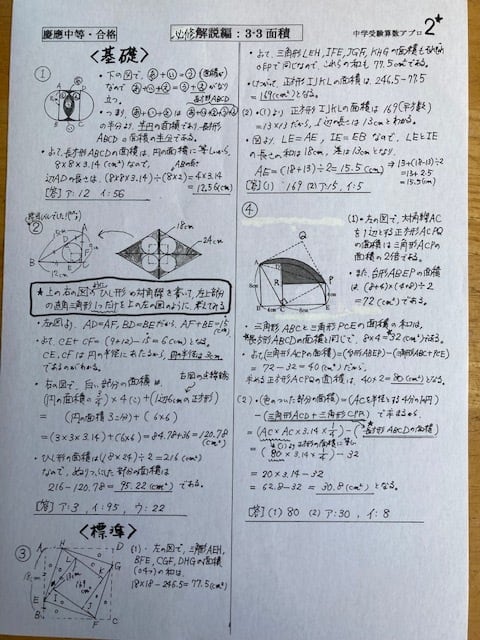 慶應中等・合格
必修解説編：3-3 面積
中学受験算数アプロ
2*
〈基礎〉
①
・下の図で、
なので
立つ。
・つまり、
の半分より、半円の面積であり、長方形
ABCDの面積の半分である。
・よって、長方形ABCDの面積は、円の面積に等しいから、
8×8×3.14 (cm²) なので、
辺ADの長さは、(8×8×3.14)÷(8×2)=4×3.14
=12.56(cm)
[答] ア：12 イ：56
②
18cm
24cm
・左の図より、AD=AF, BD=BEだから、AF+BE=15
(cm)
・よって、CE+CF=(9+12)-15=6cmとなる。
CE, CFは円の半径にあたるから、円の半径は3cm
であるのがわかる。
・右の図で、白い部分の面積は、
(円の面積の3/4)×4+(1辺6cmの正方形)
=(円の面積3こ分)+(6×6)
=(3×3×3.14)+(6×6)=84.78+36=120.78
(cm²)
・ひし形の面積は(18×24)÷2=216(cm²)
なので、ぬりつぶした部分の面積は
216-120.78=95.22(cm²)である。
[答] ア：3, イ：95, ウ：22
〈標準〉
③
18cm
169cm²
(1)・左の図で、三角形AEH,
BFE, CGF, DHGの面積
の和は、
18×18-246.5=77.5(cm²)
・よって、三角形LEH, IFE, JGF, KHGの面積も
同じなので、これらの和も77.5(cm²)である。
・したがって、正方形IJKLの面積は、246.5-77.5
=169(cm²)となる。
(2)・(1)より 正方形IJKLの面積は169(平方数)
=13×13だから、1辺の長さは13cmとわかる。
・図より、LE=AE, IE=EBなので、LEとIE
の長さの和は18cm, 差は13cmとなり、
AE=(18+13)÷2=15.5(cm)
⇒13+(18-13)÷2
=13+2.5
=15.5(cm)
[答] (1) 169 (2) ア：15, イ：5
④
A
Q
R
P
B
C
E
8cm
4cm
(1)・左の図で、対角線AC
を1辺とする正方形ACPQ
の面積は三角形ACPの
面積の2倍である。
・また、台形ABEPの面積は
(8+4)×(4+8)÷2
=72(cm²)である。
・三角形ABCと三角形PCEの面積の和は、
長方形ABCDの面積と同じで、8×4=32(cm²)である。
・よって(三角形ACPの面積)=(台形ABEP)-(三角形ABC+PCE)
=72-32=40(cm²)だから、
求める正方形ACPQの面積は、40×2=80(cm²)となる。
(2)・(色のついた部分の面積)=(ACを半径とする4分の1円)
-(三角形ACD+三角形CPR)で求まるから、
=(AC×AC×3.14×1/4)-(長方形ABCDの面積)
=(80×3.14×1/4)-32
=20×3.14-32
=62.8-32=30.8(cm²)となる。
[答] (1) 80 (2) ア：30, イ：8